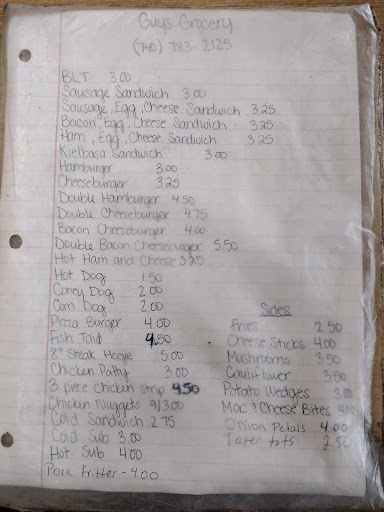 Guys Grocery
(740) 783-2125
BLT 3.00
Sausage Sandwich 3.00
Sausage, Egg, Cheese Sandwich 3.25
Bacon, Egg, Cheese Sandwich 3.25
Ham, Egg, Cheese Sandwich 3.25
Kielbasa Sandwich 3.00
Hamburger 3.00
Cheeseburger 3.25
Double Hamburger 4.50
Double Cheeseburger 4.75
Bacon Cheeseburger 4.00
Double Bacon Cheeseburger 5.50
Hot Ham and Cheese 3.25
Hot Dog 1.50
Coney Dog 2.00
Corn Dog 2.00
Pizza Burger 4.00
Fish Tail 4.50
8" Steak Hogie 5.00
Chicken Patty 3.00
3 piece chicken strip 4.50
Chicken Nuggets 9/3.00
Cold Sandwich 2.75
Cold Sub 3.00
Hot Sub 4.00
Pork Fritter - 4.00
Sides
Fries 2.50
Cheese Sticks 4.00
Mushrooms 3.50
Cauliflower 3.50
Potato Wedges 3.00
Mac & Cheese Bites
Onion Petals 4.00
Tater tots 2.50